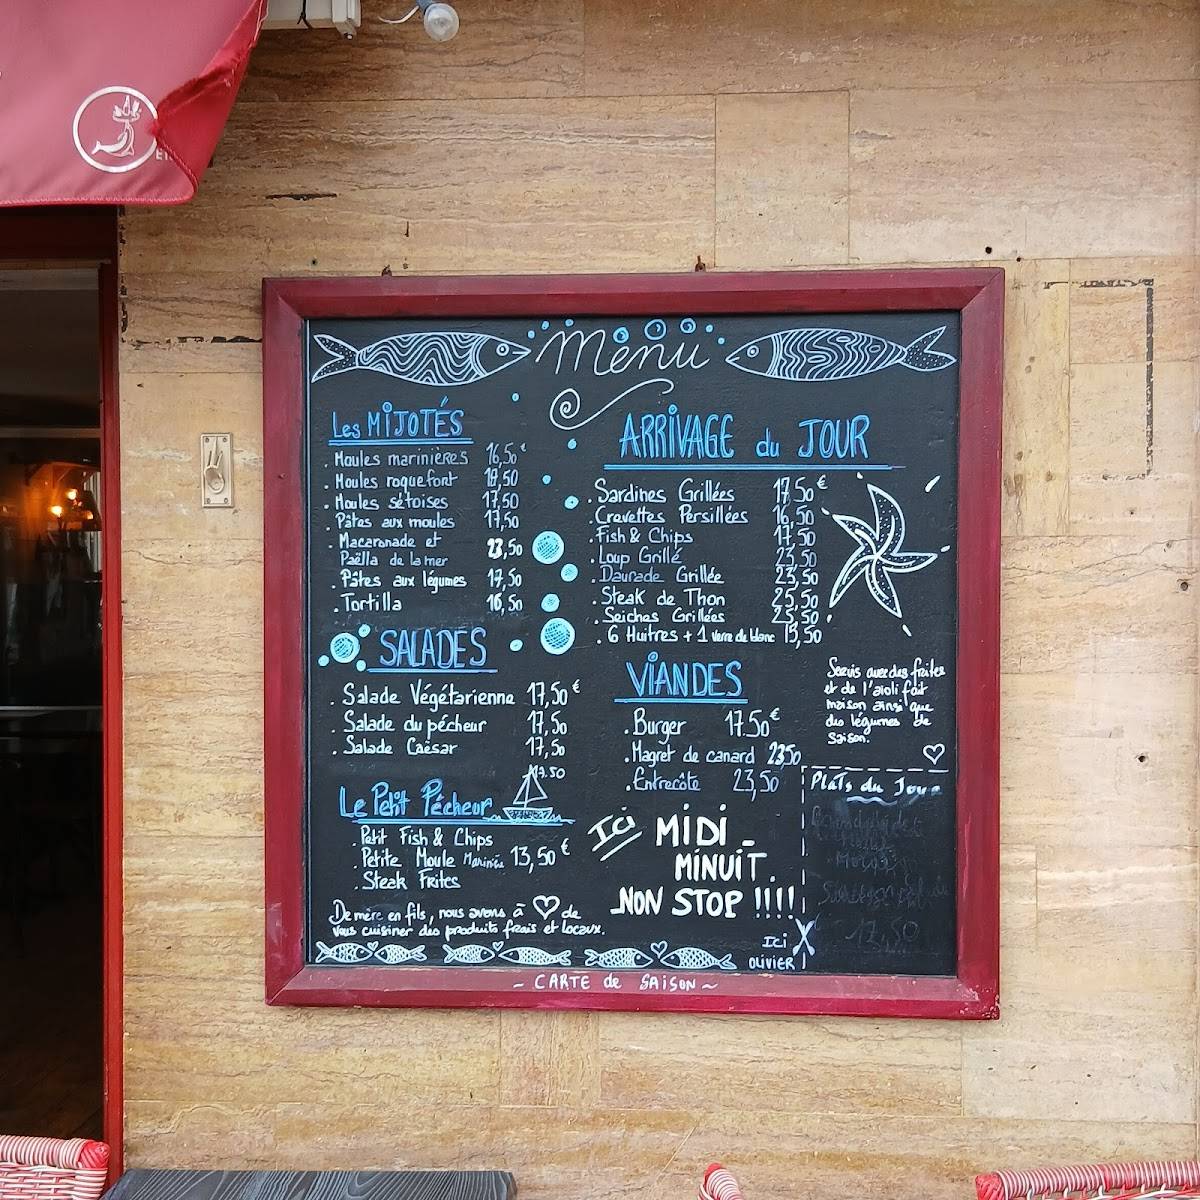 Menu
Les MIJOTÉS
. Moules marinières 16,50€
. Moules roquefort 18,50
. Moules sétoises 17,50
. Pâtes aux moules 17,50
. Macaronade et
Paëlla de la mer 23,50
. Pâtes aux légumes 17,50
. Tortilla 16,50
SALADES
. Salade Végétarienne 17,50€
. Salade du pécheur 17,50
. Salade Caésar 17,50
17.50
Le Petit Pêcheur
. Petit Fish & Chips
. Petite Moule Marinière 13,50€
. Steak Frites
De mère en fils, nous avons à de
vous cuisiner des produits frais et locaux.
ARRIVAGE du JOUR
. Sardines Grillées 17,50€
. Crevettes Persillées 16,50
. Fish & Chips 17,50
. Loup Grillé 23,50
. Daurade Grillée 23,50
. Steak de Thon 25,50
. Seiches Grillées 23,50
. 6 Huitres + 1 verre de blanc 15,50
Servis avec des frites
et de l'aïoli fait
maison ainsi que
des légumes de
saison.
VIANDES
. Burger 17.50€
. Magret de canard 23,50
. Entrecôte 23,50
Ici MIDI -
MINUIT.
NON STOP !!!!
Plats du Jour
17,50
Ici
OLIVIER
~ CARTE de SAISON ~